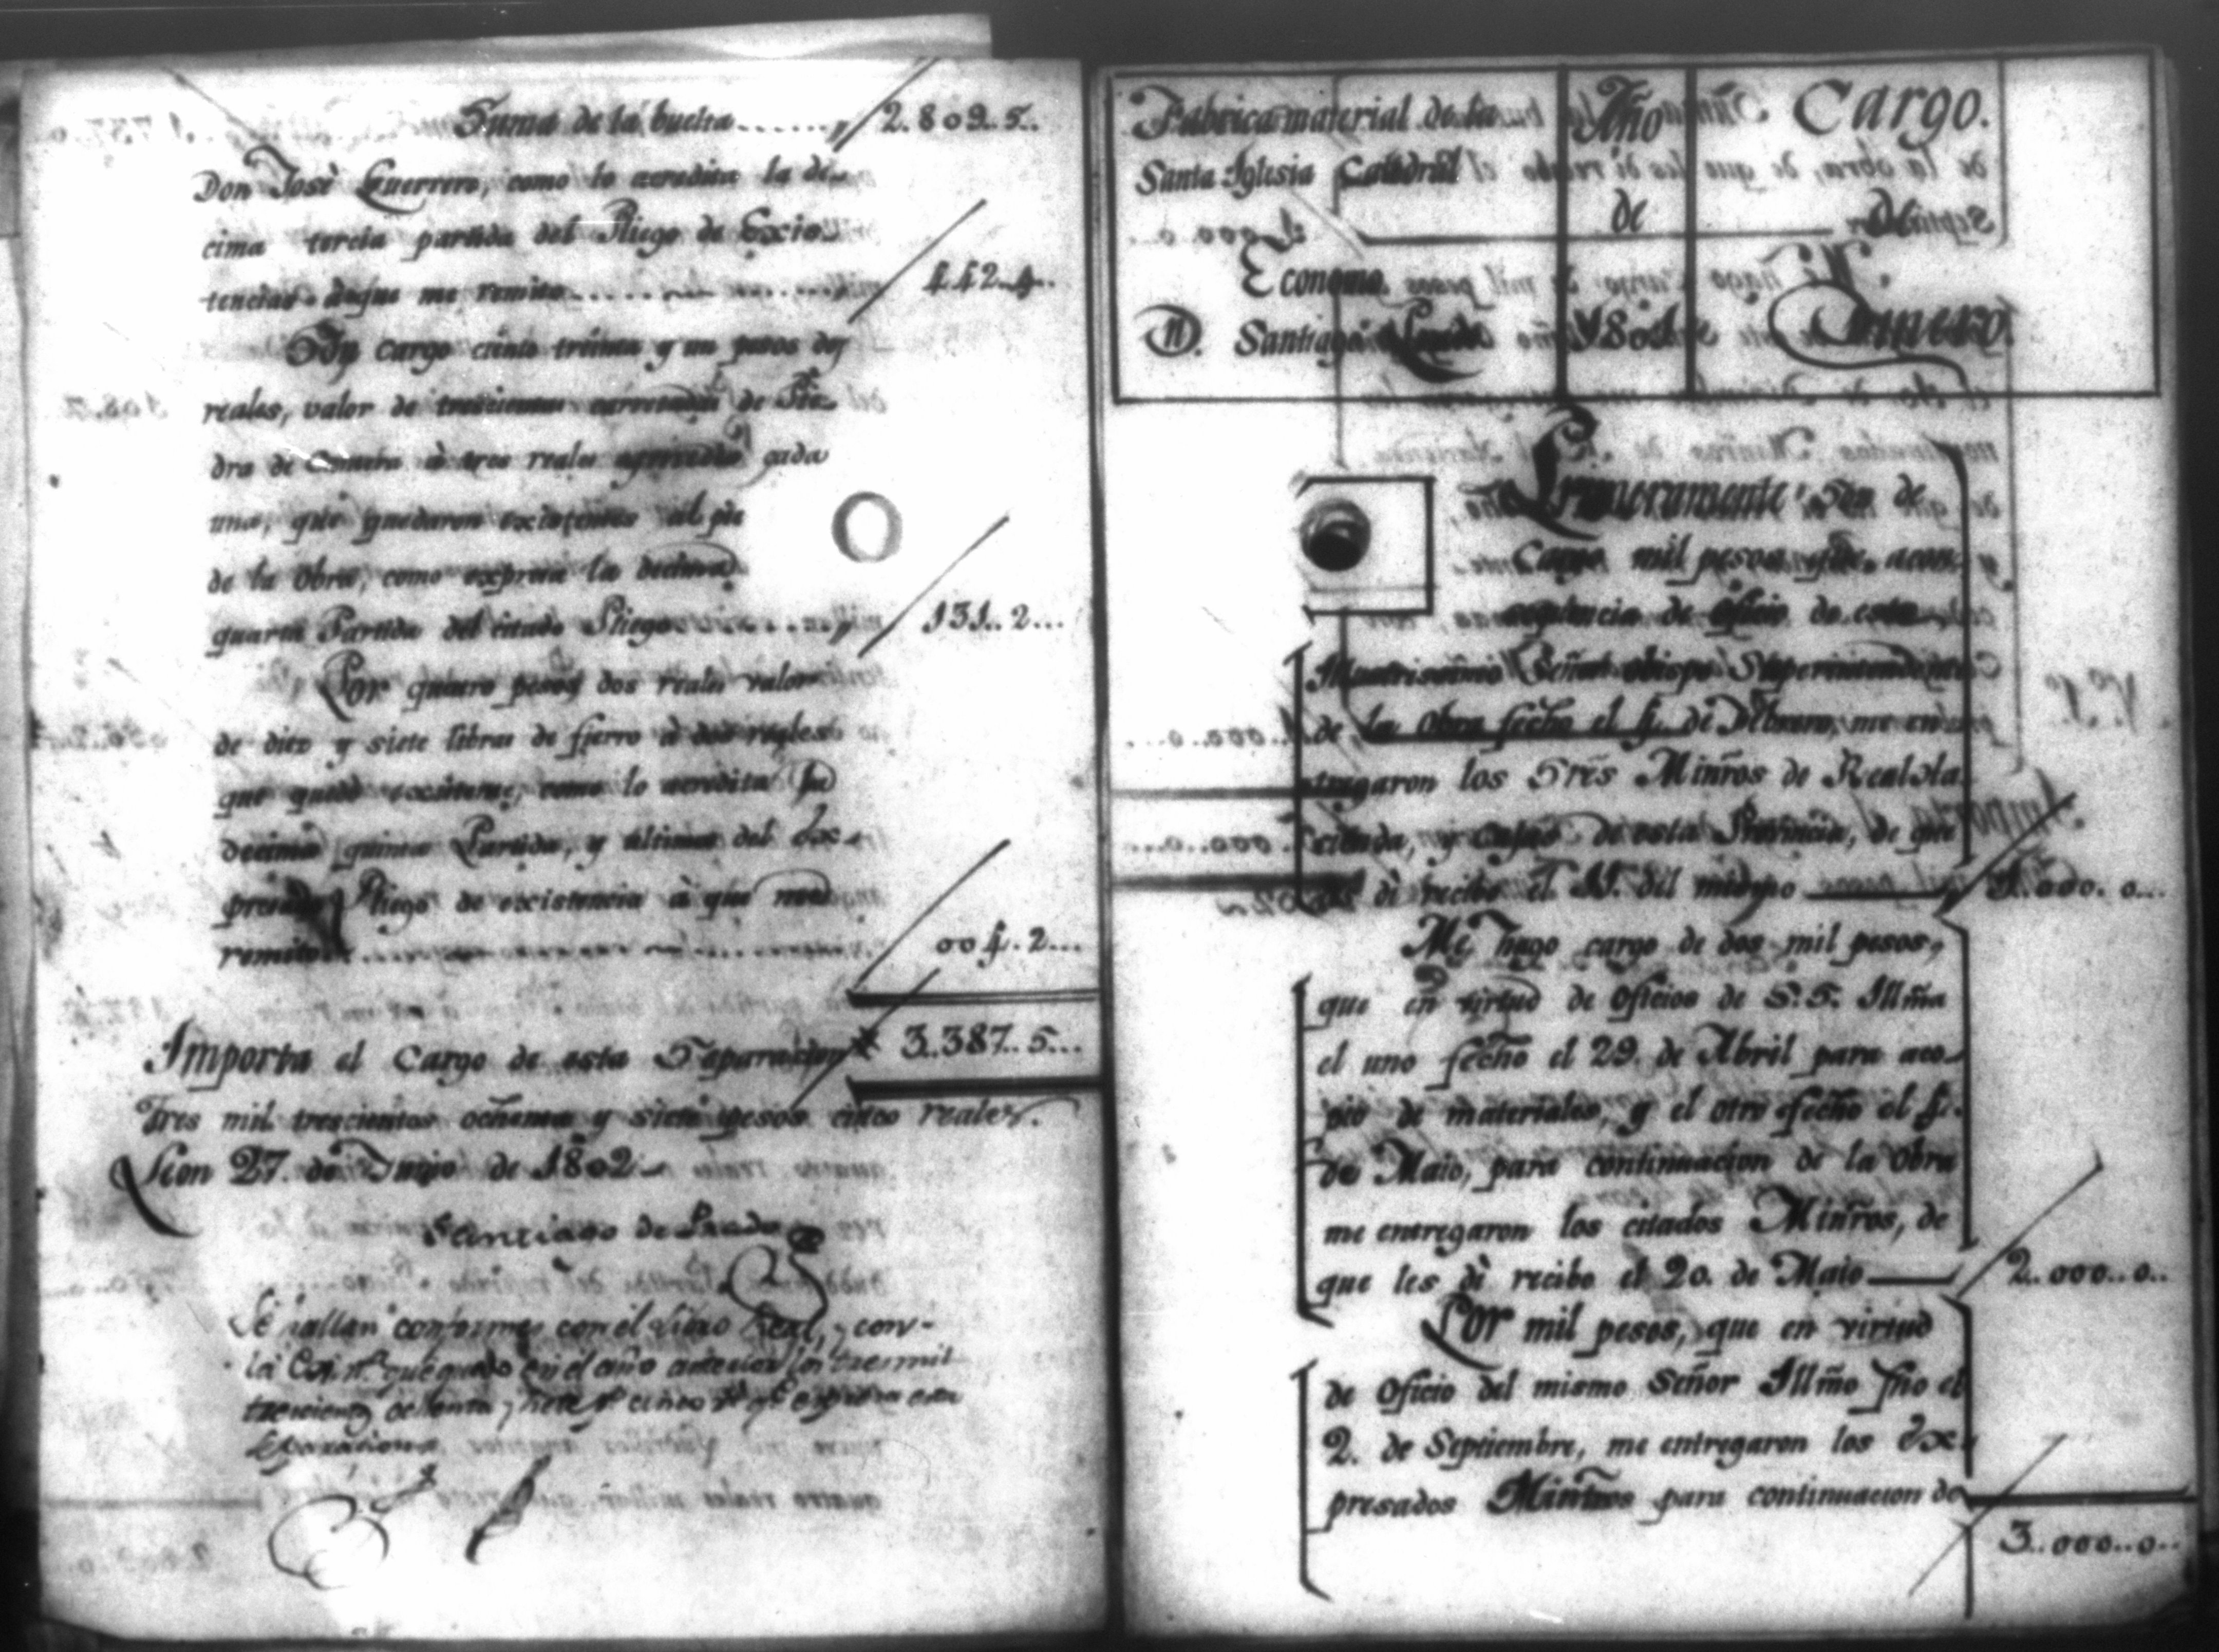 Suma de la buelta 2.809..5..
Don José Guerrero, como lo acredita la de-
cima tercia partida del Pliego de Exis-
tencias aque me remito 442..4..
Soy cargo ciento treinta y un pesos dos
reales, valor de trescientas carretadas de Pie-
dra de Cantera à tres reales cada
una, que quedaron existentes al pie
de la Obra, como expresa la decima
quarta Partida del citado Pliego 131..2...
Por quatro pesos dos reales valor
de diez y siete libras de fierro à dos reales
que quedó existente, como lo acredita la
decima quinta Partida, y ultima del Ex-
presado Pliego de existencia à que me
remito 004.2...
Importa el Cargo de esta Separacion 3..387..5...
Tres mil trescientos ochenta y siete pesos cinco reales.
Leon 27. de Junio de 1802
Santiago de Prado
Se hallan conformes con el Libro Real, y con-
la que quedó en el año anterior los tres mil
trescientos ochenta y siete p.s cinco r.s q.e expresa esta
Separacion
Fabrica material de la
Santa Iglesia Catedral
Economo.
D. Santiago Prado
Año
de
1801
Cargo.
De
Dinero.
Primeramente, Son de
Cargo mil pesos que, acon-
seqüencia de oficio de este
Illustrisimo Señor obispo Superintendente
de la Obra fecho el 4. de Febrero, me en-
tregaron los Sres Minros de Real Ha-
cienda, y Caxas de esta Provincia, de que
les dì recibo el 11. del mismo 1.000. 0...
Me hago cargo de dos mil pesos,
que en virtud de Oficios de S.S. Illma
el uno fecho el 29. de Abril para aco-
pio de materiales, y el otro fecho el 4.
de Maio, para continuacion de la Obra
me entregaron los citados Minros, de
que les dì recibo el 20. de Maio 2..000..0..
Por mil pesos, que en virtud
de Oficio del mismo Señor Illmo fho el
2. de Septiembre, me entregaron los Ex-
presados Mintros para continuacion de
3..000..0..